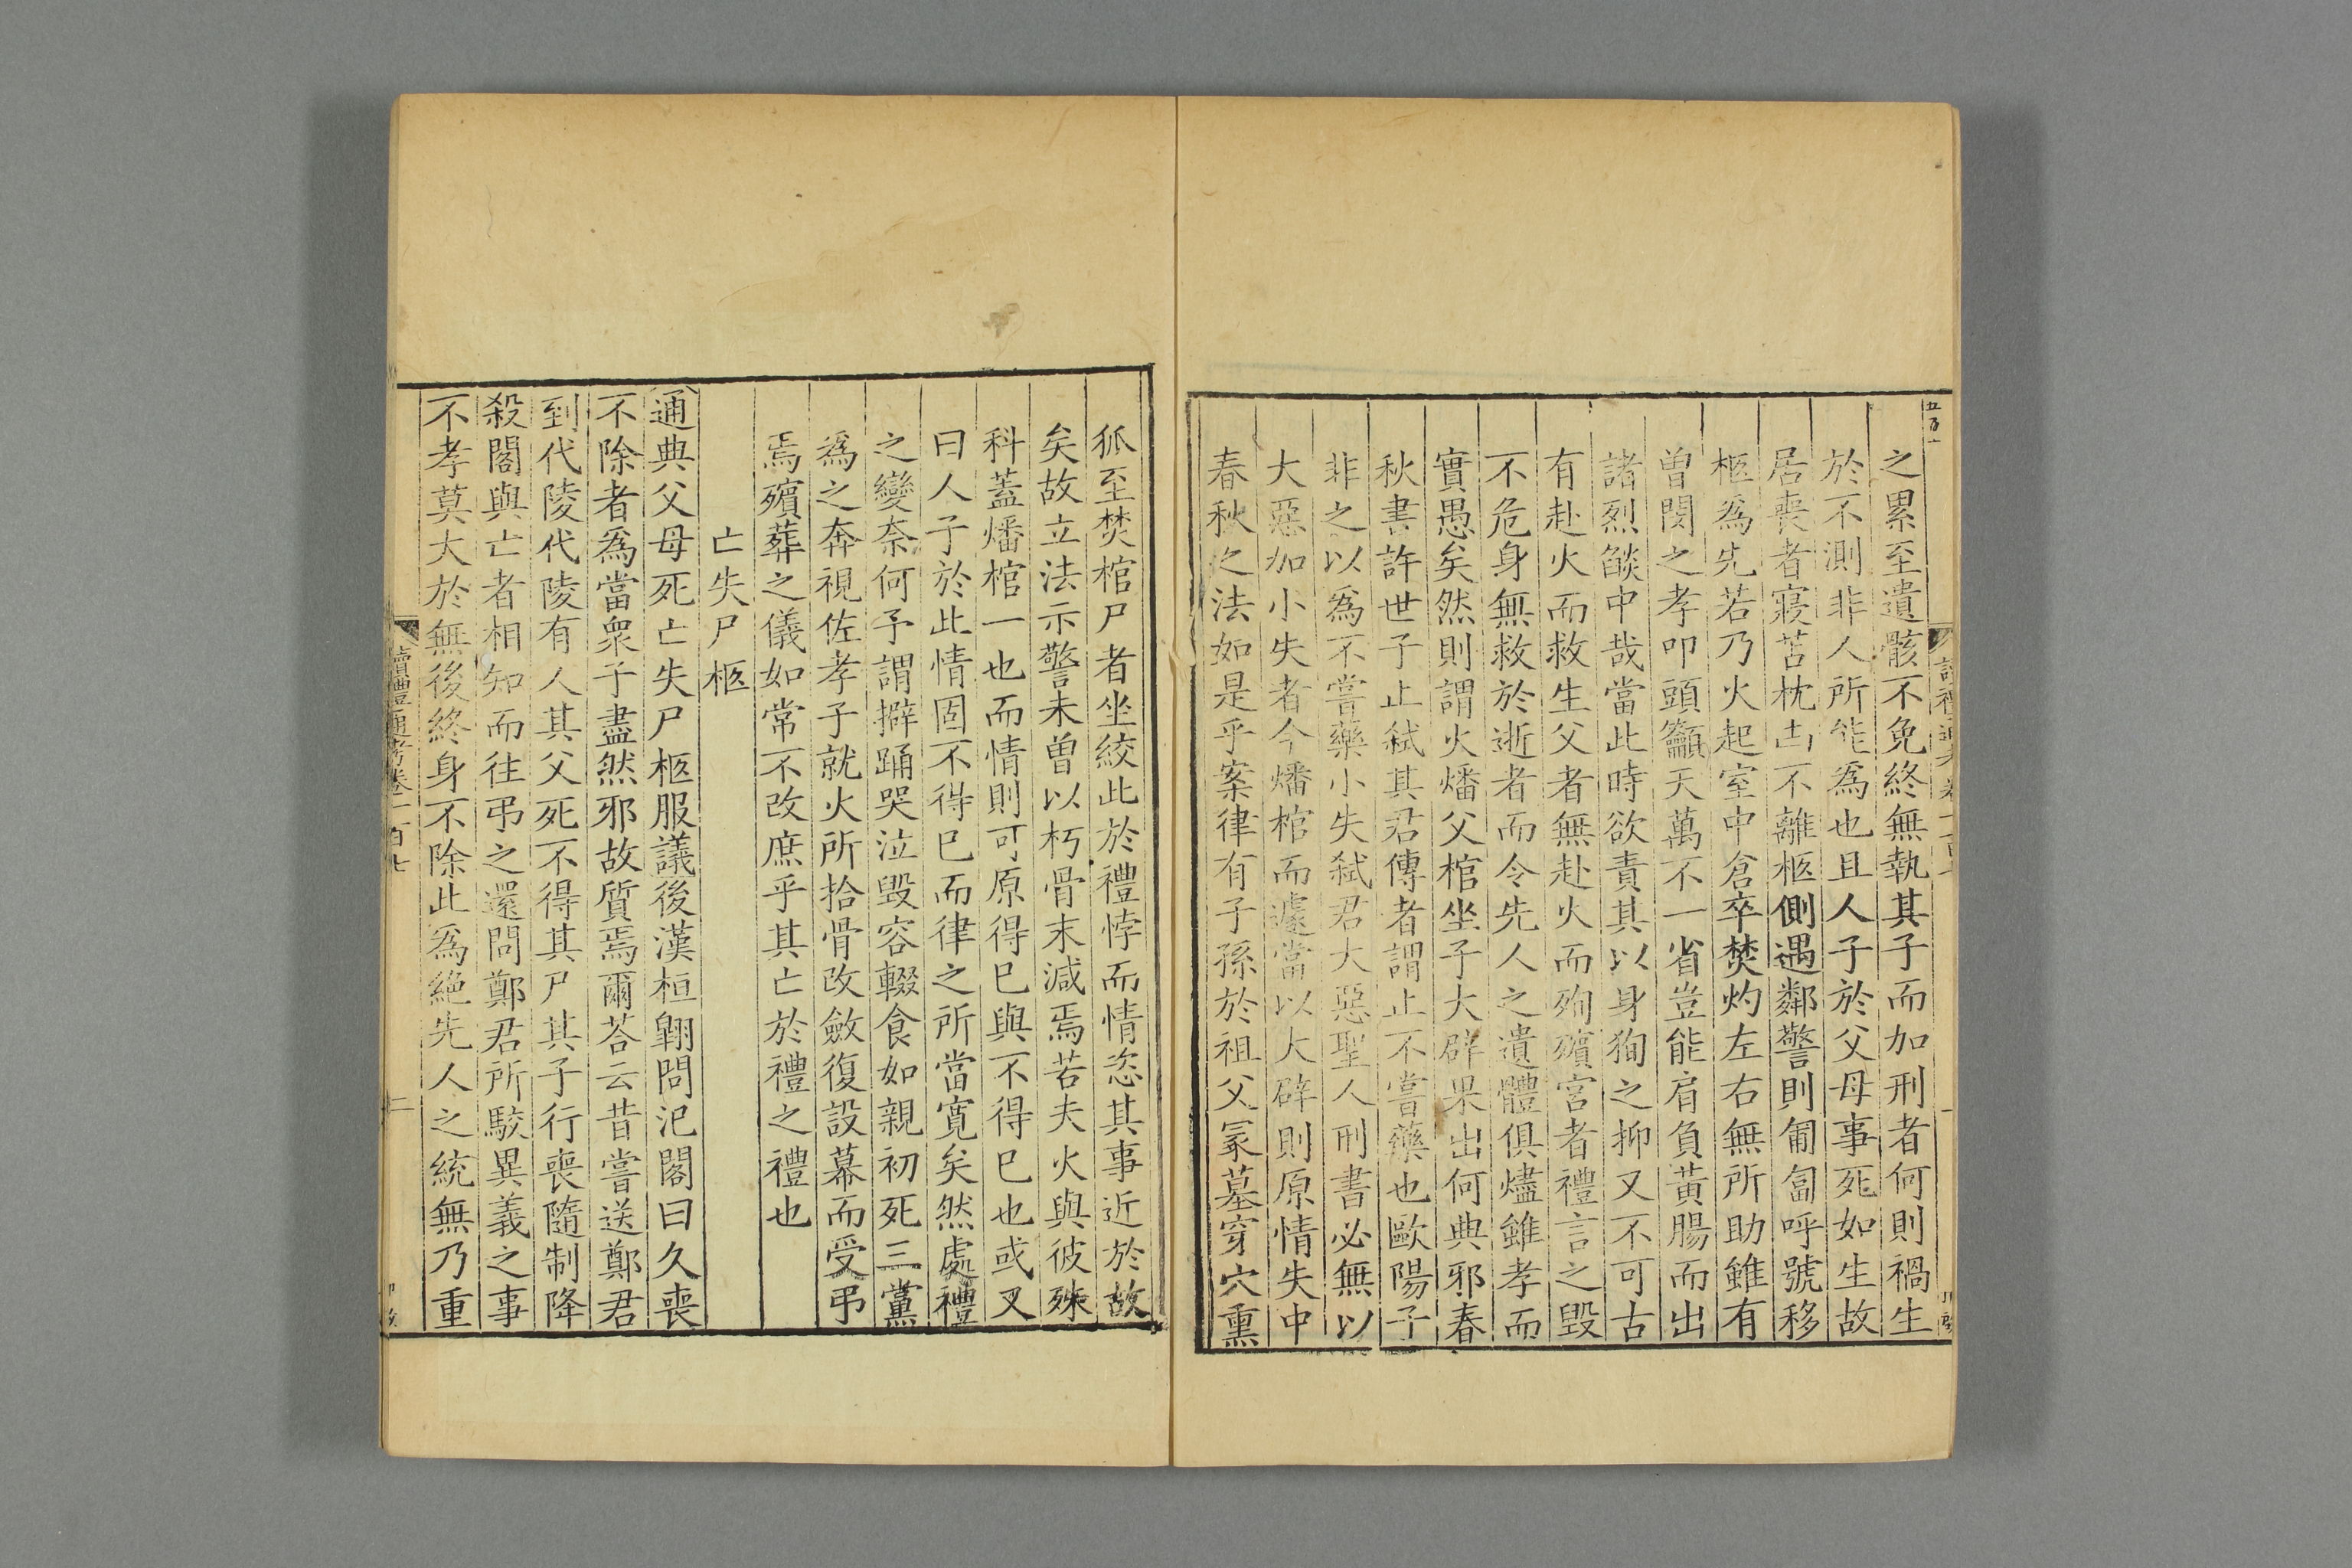 之累至遺骸不免終無執其子而加刑者何則禍生
於不測非人所能為也且人子於父母事死如生故
居喪者寢苫枕凷不離柩側遇鄰警則匍匐呼號移
柩為先若乃火起室中倉卒焚灼左右無所助雖有
曾閔之孝叩頭籲天萬不一省豈能肩負黃腸而出
諸烈燄中哉當此時欲責其以身狥之抑又不可古
有赴火而救生父者無赴火而殉殯宮者禮言之毀
不危身無救於逝者而令先人之遺體俱燼雖孝而
實愚矣然則謂火燔父棺坐子大辟果出何典邪春
秋書許世子止弒其君傳者謂止不嘗藥也歐陽子
非之以為不嘗藥小失弒君大惡聖人刑書必無以
大惡加小失者今燔棺而遽當以大辟則原情失中
春秋之法如是乎案律有子孫於祖父冡墓穿穴熏
狐至焚棺尸者坐絞此於禮悖而情恣其事近於故
矣故立法示警未曾以朽骨末減焉若夫火與彼殊
科蓋燔棺一也而情則可原得巳與不得巳也或又
曰人子於此情固不得巳而律之所當寬矣然處禮
之變奈何予謂擗踊哭泣毀容輟食如親初死三黨
為之奔視佐孝子就火所拾骨改斂復設幕而受弔
焉殯葬之儀如常不改庶乎其亡於禮之禮也
亡失尸柩
通典父母死亡失尸柩服議後漢桓翺問氾閣曰久喪
不除者為當衆子盡然邪故質焉爾荅云昔嘗送鄭君
到代陵代陵有人其父死不得其尸其子行喪隨制降
殺閣與亡者相知而往弔之還問鄭君所駮異義之事
不孝莫大於無後終身不除此為絕先人之統無乃重
讀禮通考卷一百七
二